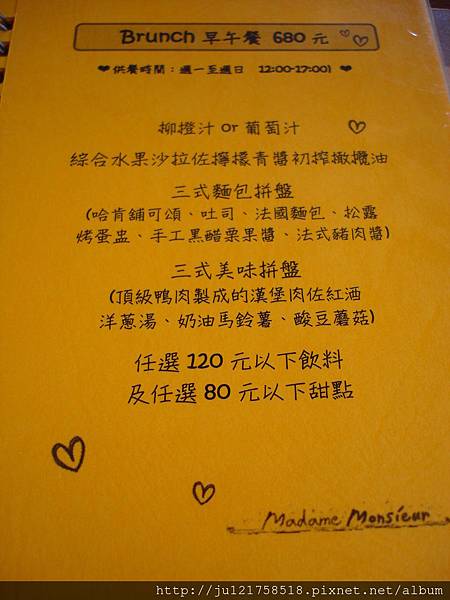 Brunch 早午餐 680 元
❤供餐時間：週一至週日 12:00-17:00) ❤
柳橙汁 or 葡萄汁
綜合水果沙拉佐檸檬青醬初搾橄欖油
三式麵包拼盤
(哈肯鋪可頌、吐司、法國麵包、松露
烤蛋盅、手工黑醋栗果醬、法式豬肉醬)
三式美味拼盤
(頂級鴨肉製成的漢堡肉佐紅酒
洋蔥湯、奶油馬鈴薯、酸豆蘑菇)
任選 120 元以下飲料
及任選 80 元以下甜點
Madame Monsieur
http://ju121758518.pixnet.net/album